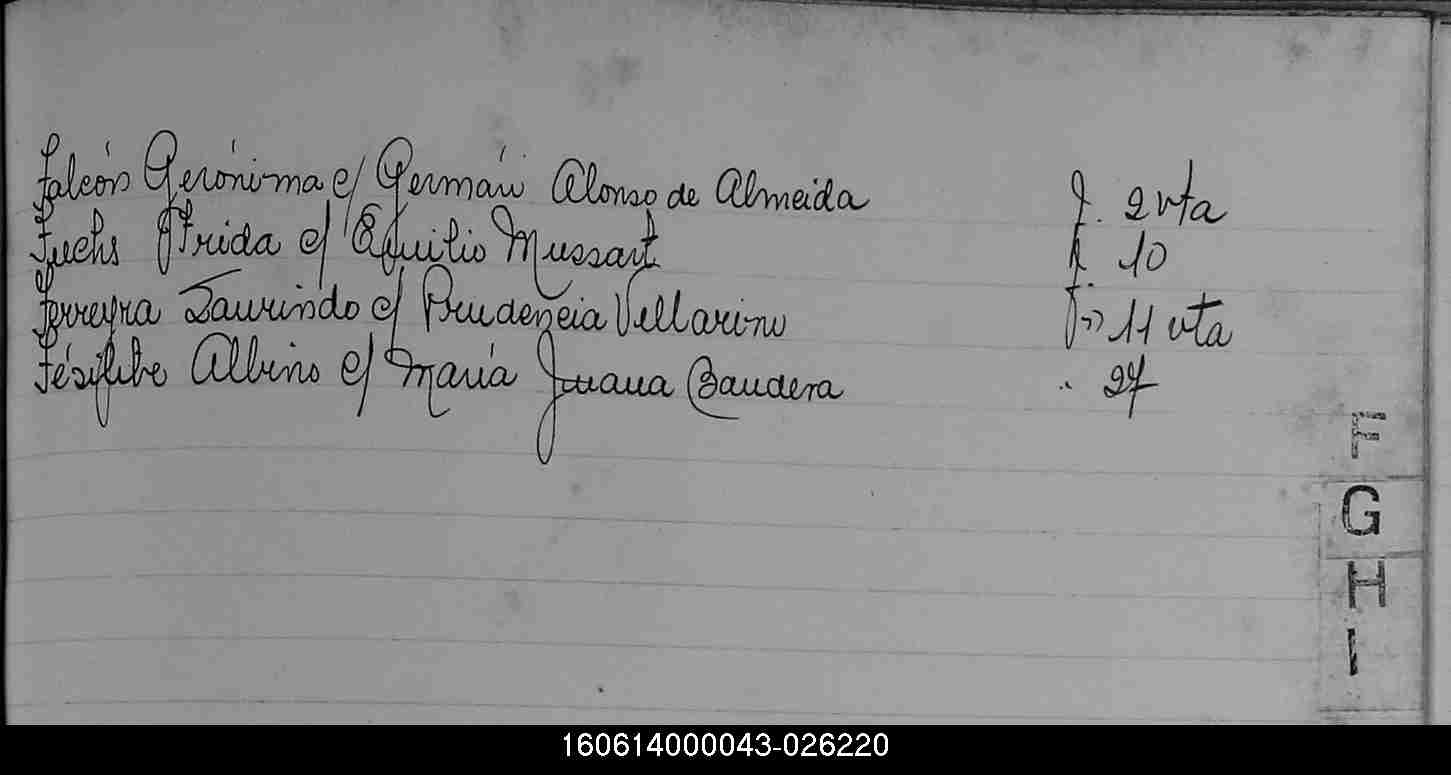 Falcón Gerónima c/ Germán Alonso de Almeida f. 2 vta
Fuchs Frida c/ Mussart f. 10
Ferreyra Laurindo c/ Prudencia Villarino f. 11 vta
Albino c/ María Juana Bandera " 27
F
G
H
I
160614000043-026220